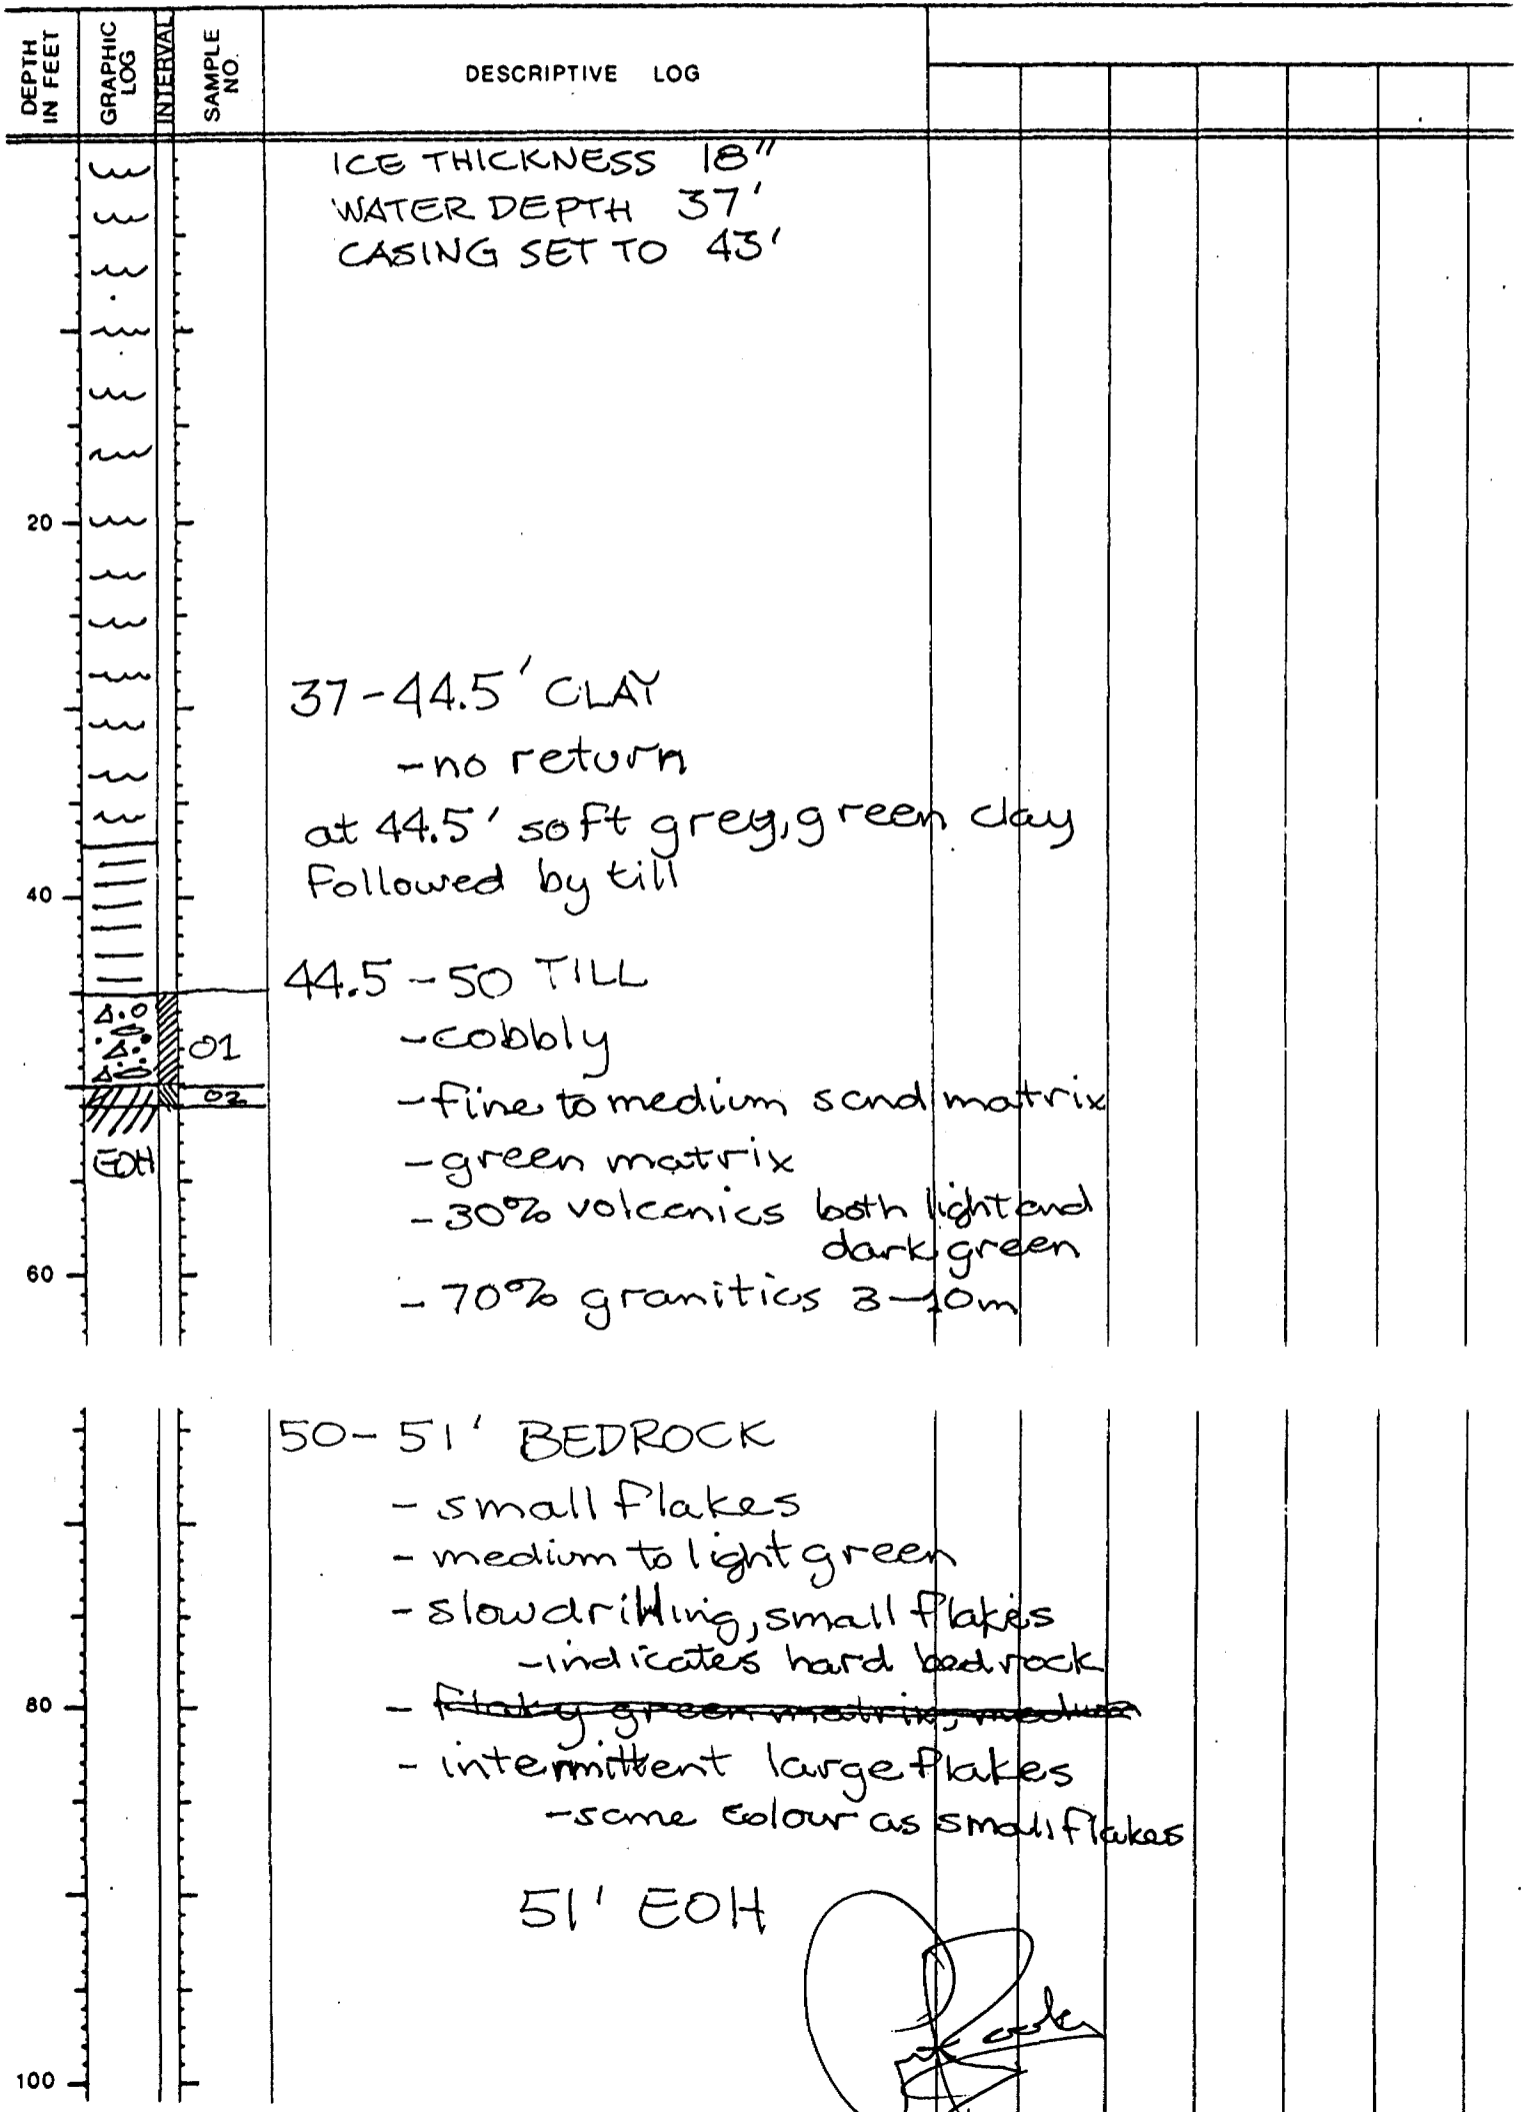 DEPTH IN FEET
GRAPHIC LOG
INTERVAL
SAMPLE NO.
DESCRIPTIVE LOG
ICE THICKNESS 18"
WATER DEPTH 37'
CASING SET TO 43'
20
37-44.5' CLAY
-no return
at 44.5' soft grey, green clay
followed by till
40
44.5-50 TILL
-cobbly
01
02
-fine to medium sand matrix
EOH
-green matrix
-30% volcanics both light and
dark green
60
-70% granitics 3-10m
50-51' BEDROCK
-small flakes
-medium to light green
-slow drilling, small flakes
-indicates hard bedrock
80
-flaky green matrix, medium
-intermittent large flakes
-same colour as small flakes
51' EOH
100